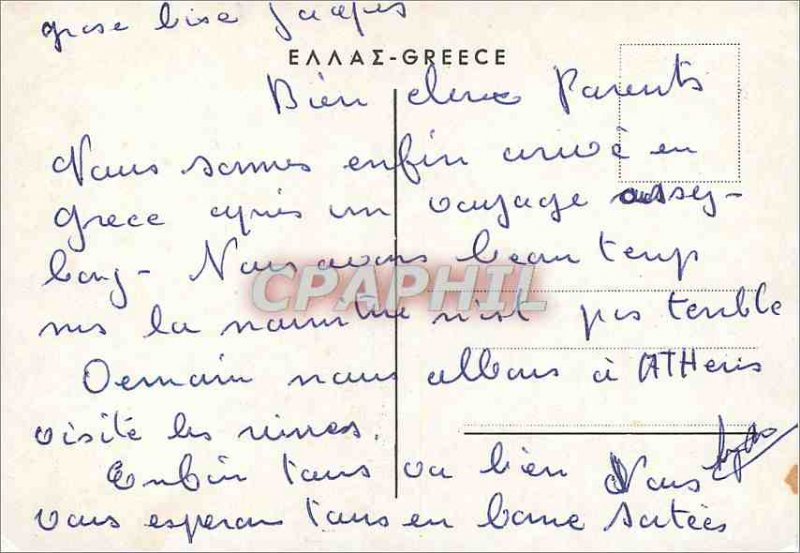 grose bise Jacques
ΕΛΛΑΣ-GREECE
Bien chers Parents
Nous sommes enfin arrivé en
Grece après un voyage assey-
long- Nous avons beau temp
mes la nourriture n'est pas terrible
Demain nous allons à ATHenis
visité les ruines.
Enfin tous va bien Nous
vous esperons tous en bonne Santées
CPAPHIL